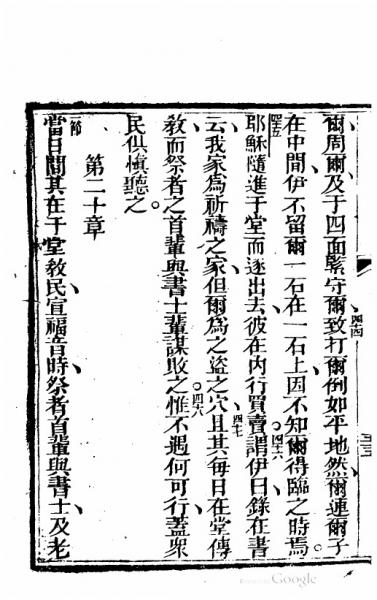 爾周爾及于四面緊守爾致打爾倒如平地然爾連爾子
在中間伊不留爾一石在一石上因不知爾得臨之時焉
耶穌隨進于堂而逐出去彼在內行買賣謂伊曰錄在書
云我家為祈禱之家但爾為之盜之穴且其每日在堂傳
教而祭者之首輩與書士輩謀敗之惟不遇何可行蓋眾
民俱慎聽之
第二十章
當日間其在于堂教民宣福音時祭者首輩與書士及老
Google